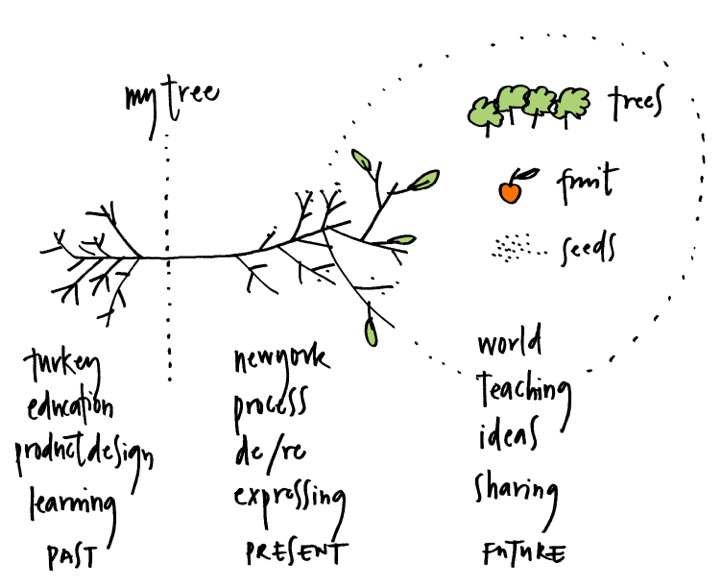 my tree
trees
fruit
seeds
turkey
education
product design
learning
PAST
newyork
process
de/re
exprossing
PRESENT
world
teaching
ideas
sharing
FUTURE